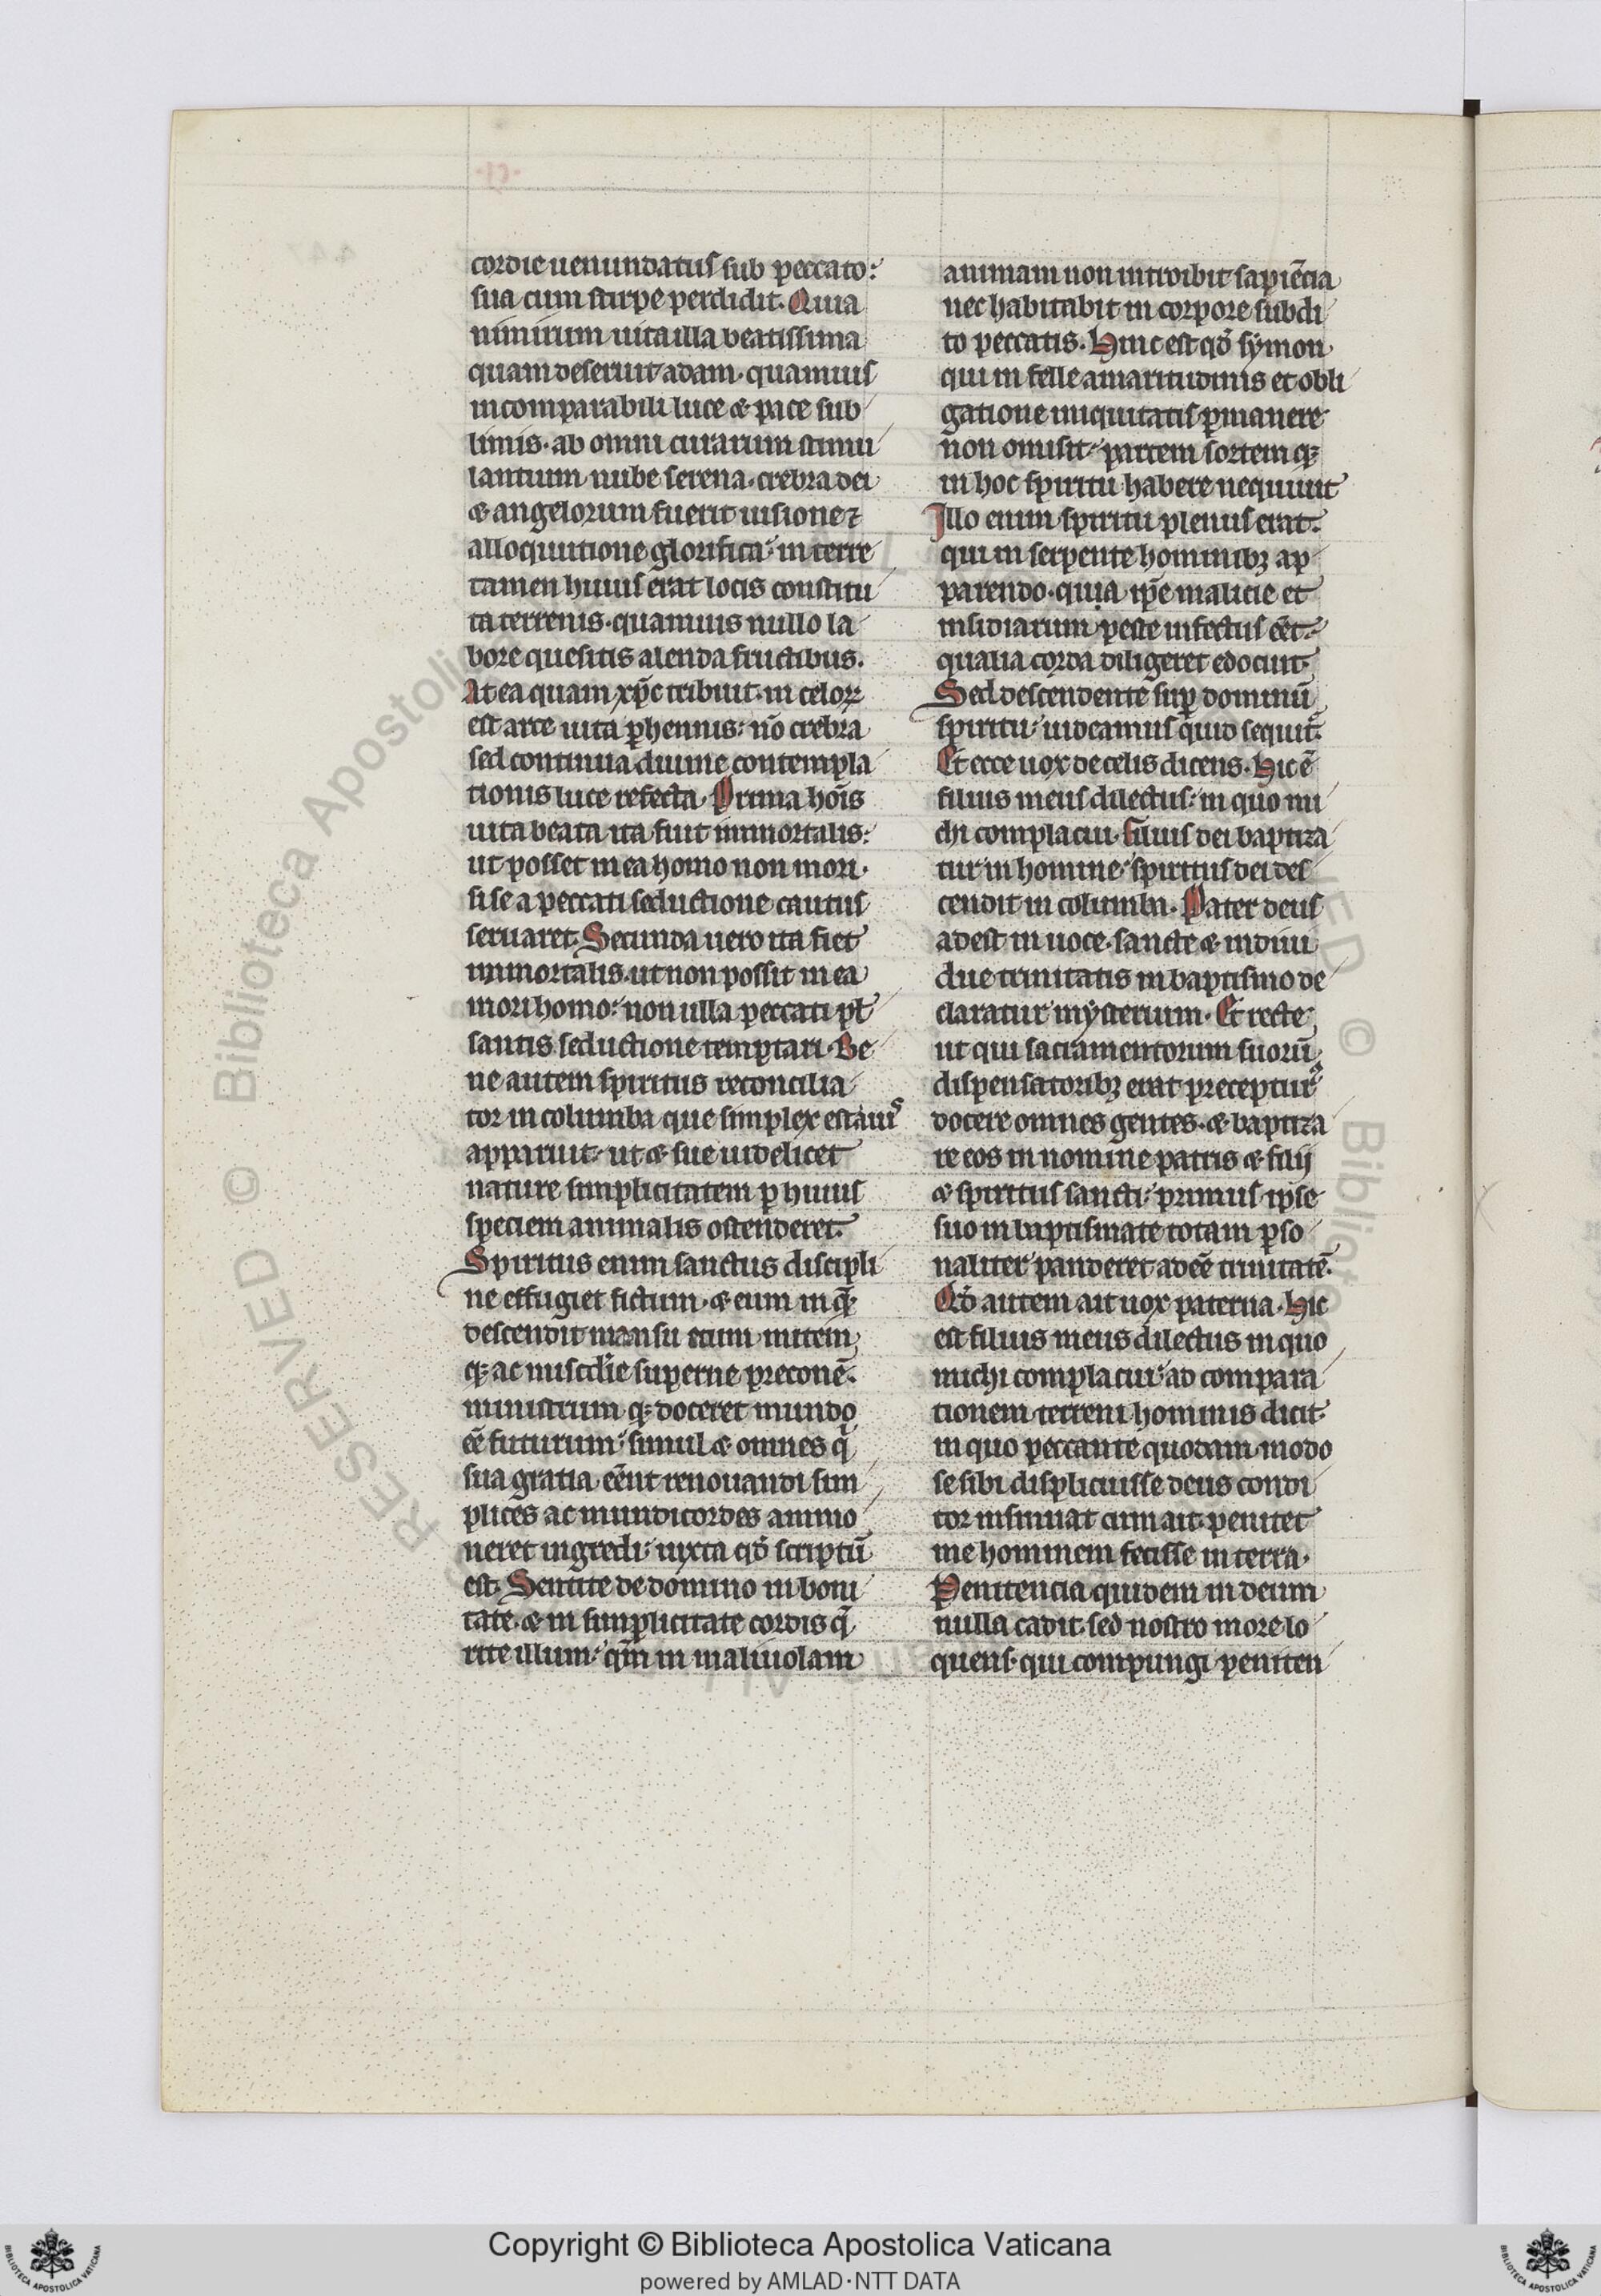 cordie uenundatus sub peccato:
sua cum stirpe perdidit. Quia
nimirum uita illa beatissima
quam deseruit adam. quamuis
incomparabili luce & pace sub
limis. ab omni curarum stimu
lantium nube serena. crebra dei
& angelorum fuerit uisione ⁊
alloquutione glorifica: in terre
tamen huius erat locis constitu
ta terrenis. quamuis nullo la
bore quesitis alenda fructibus.
At ea quam xp̄c tribuit. in celoꝝ
est arce uita ꝑhennis: nō crebra
sed continua diuine contempla
tionis luce refecta. Prima hoīs
uita beata ita fuit immortalis:
ut posset in ea homo non mori.
si se a peccati seductione cautus
seruaret. Secunda uero ita fiet
immortalis. ut non possit in ea
mori homo: non ulla peccati pl̄
santis seductione temptari. Be
ne autem spiritus reconcilia
tor in columba que simplex est auis
apparuit. ut & sue uidelicet
nature simplicitatem ꝑ huius
speciem animalis ostenderet.
Spiritus enim sanctus discipli
ne effugiet fictum. & eum in q̄
descendit mansu etum mitem
q; ac miscd̄ie superne preconē.
ministrum q; doceret mundo
eē futurum: simul & omnes q
sua gratia eēnt renouandi sim
plices ac mundicordes ammo
neret ingredi: iuxta qd̄ scriptū
est. Sentite de domino in boni
tate. & in simplicitate cordis q̄
rite illum: qm̄ in maliuolam
animam non introibit sapiēcia
nec habitabit in corpore subdi
to peccatis. Hinc est qd̄ symon
qui in felle amaritudinis et obli
gatione iniquitatis ꝑmanere
non omisit: partem sortem q;
in hoc spiritu habere nequiuit
Illo enim spiritu plenus erat:
qui in serpente hominibꝫ ap
parendo. quia ip̄e malicie et
insidiarum peste infectus eēt:
qualia corda diligeret edocuit.
Sed descendente suꝑ dominū
spiritu: uideamus quid sequit̄.
Et ecce uox de celis dicens. Hic ē
filius meus dilectus: in quo mi
chi complacui. Filius dei baptiza
tur in homine: spiritus dei des
cendit in columba. Pater deus
adest in uoce. sancte & indiui
due trinitatis in baptismo de
claratur mysterium. Et recte
ut qui sacramentorum suorū
dispensatoribꝫ erat preceptur᷒
docere omnes gentes. & baptiza
re eos in nomine patris & filij
& spiritus sancti: primus ipse
suo in baptismate totam ꝑso
naliter panderet adeē trinitatē.
Qd̄ autem ait uox paterna. Hic
est filius meus dilectus in quo
michi complacui: ad compara
tionem terreni hominis dicit.
in quo peccante quodam modo
se sibi displicuisse deus condi
tor insinuat cum ait. penitet
me hominem fecisse in terra.
Penitencia quidem in deum
nulla cadit. sed nostro more lo
quens. qui compungi peniten
Copyright © Biblioteca Apostolica Vaticana
powered by AMLAD·NTT DATA